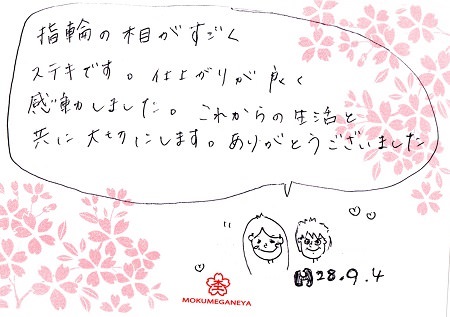 指輪の相がすごく
ステキです。仕上がりが良く
感動しました。これからの生活と
共に大切にします。ありがとうございました
H28.9.4
MOKUMEGANEYA